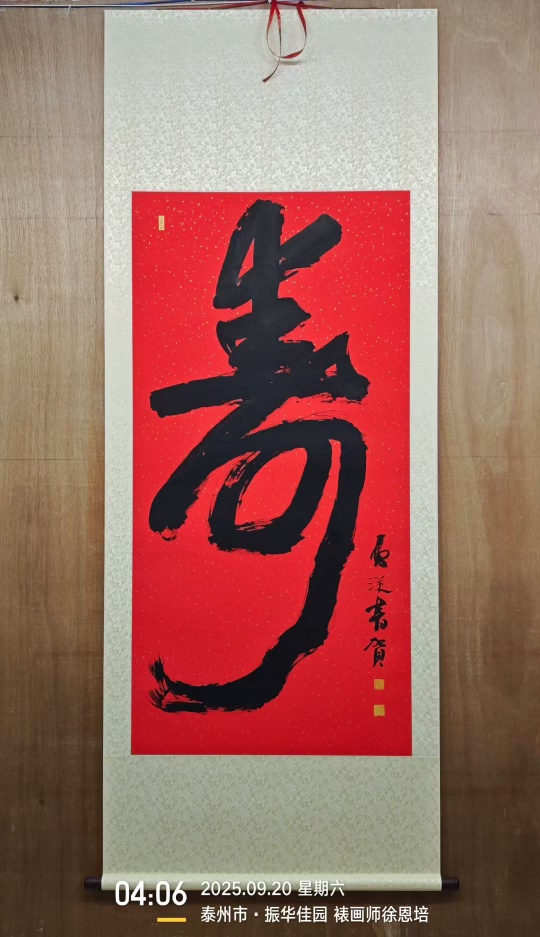 寿
书贺
04:06
2025.09.20 星期六
泰州市·振华佳园 裱画师徐恩培